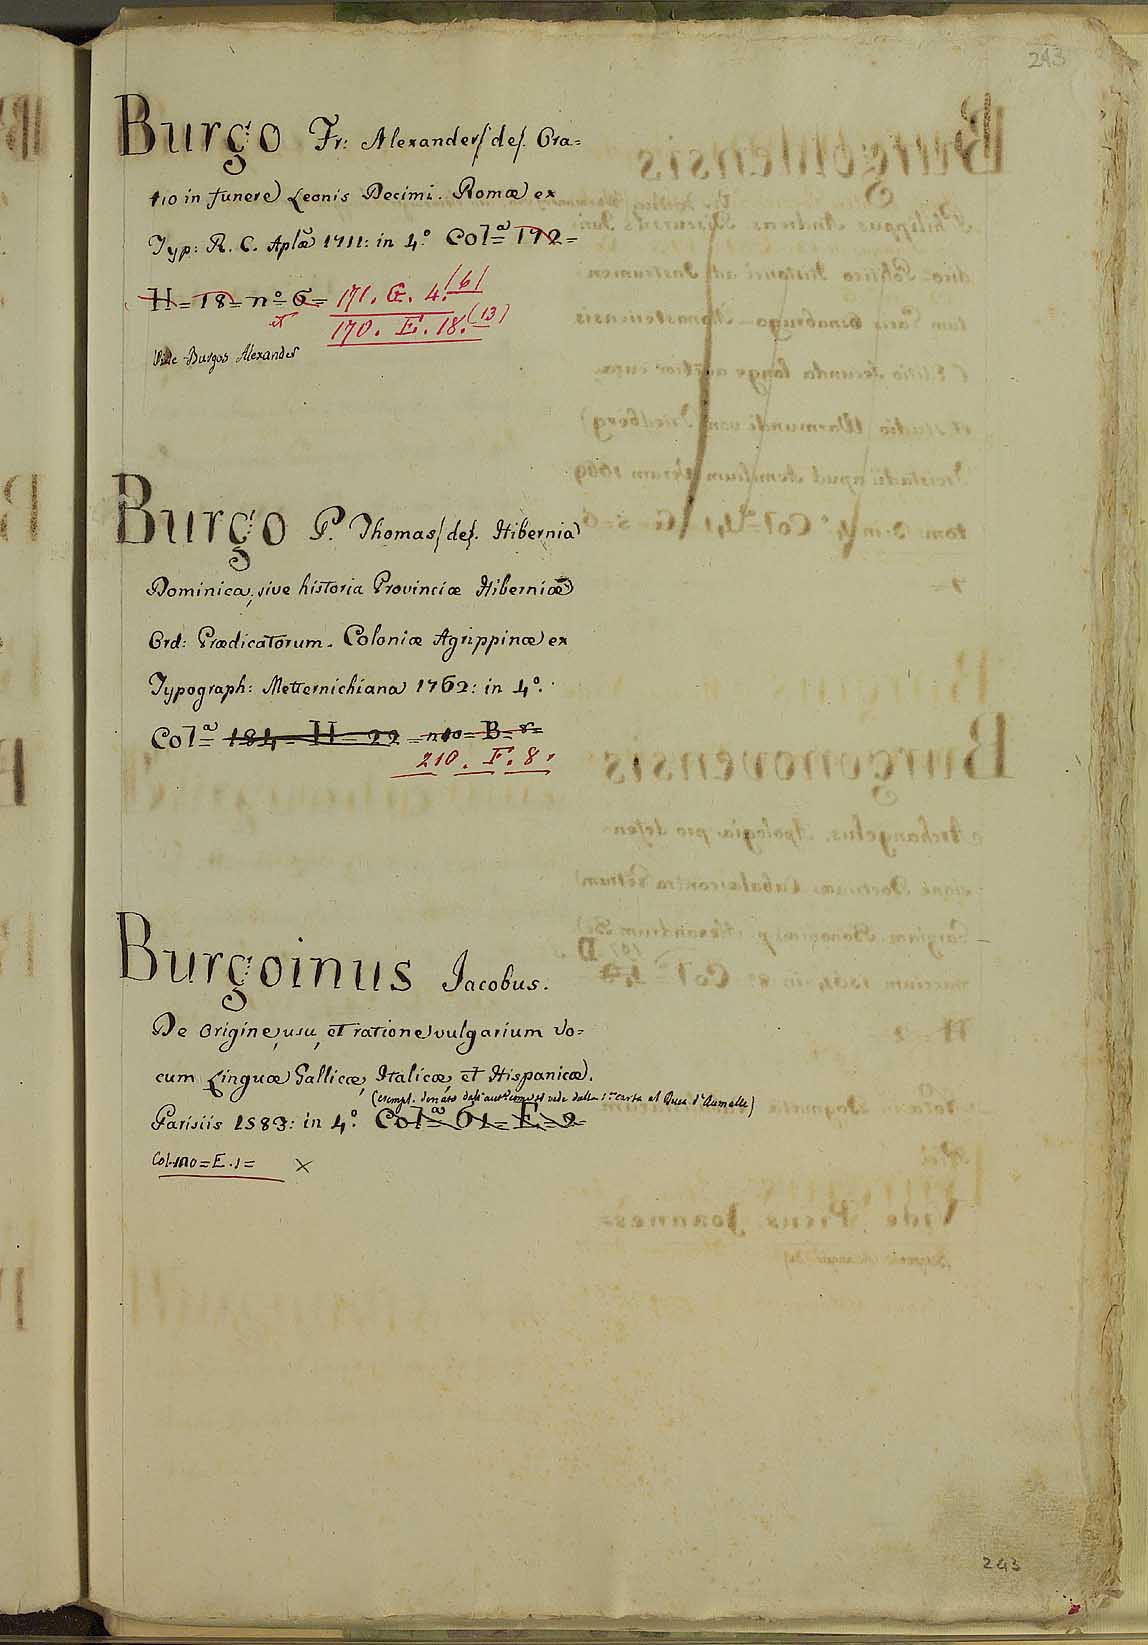 243
Burgo Fr: Alexander (de). Ora=
tio in funere Leonis Decimi. Romæ ex
Typ: R. C. Aplã 1711: in 4.º Col=ª 192=
H=18= nº 6= 171. G. 4. (6)
et 170. E. 18. (13)
Vide Burgos Alexander
Burgo P. Thomas (de). Hibernia
Dominica, sive historia Provinciæ Hiberniæ
Ord: Prædicatorum. Coloniæ Agrippinæ ex
Typograph: Metternichiana 1762: in 4º.
Col=ª 184= H= 22 = nº10= B= 8=
210. F. 8.
Burgoinus Jacobus.
De Origine, usu, et ratione vulgarium Vo=
cum Linguæ Gallicæ, Italicæ, et Hispanicæ.
(esempl. donato dall'aut. come si vede dalla 1ª carta al Duca d'Aumalle)
Parisiis 1583: in 4º. Col=ª 61= E= 2=
Col. 110= E. 1= X
243